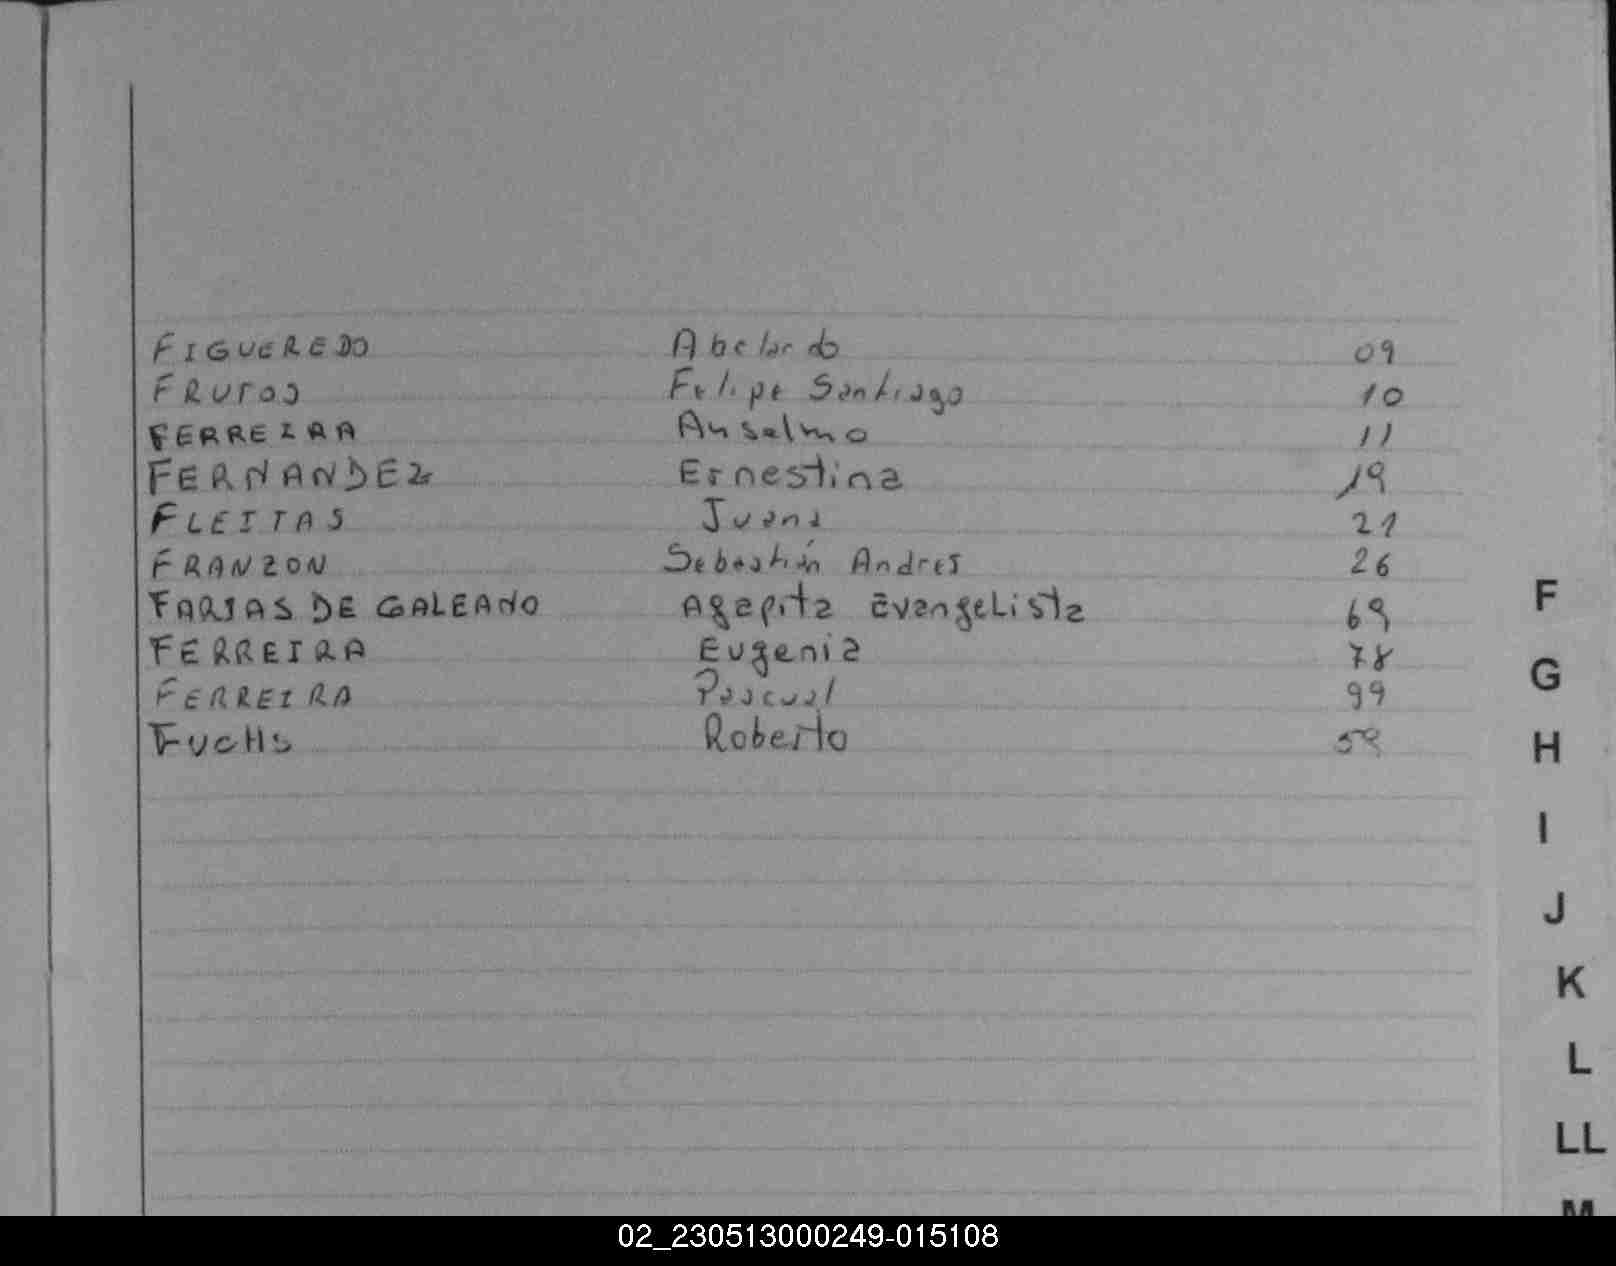 FIGUEREDO Abelardo 09
FRUTOS Felipe Santiago 10
FERREIRA Anselmo 11
FERNANDEZ Ernestina 19
FLEITAS Juana 21
FRANZON Sebastián Andres 26
FARIAS DE GALEANO Agapita EvangeLista 69
FERREIRA Eugenia 78
FERREIRA Pascual 99
FucHs Roberto 59
F
G
H
I
J
K
L
LL
M
02_230513000249-015108